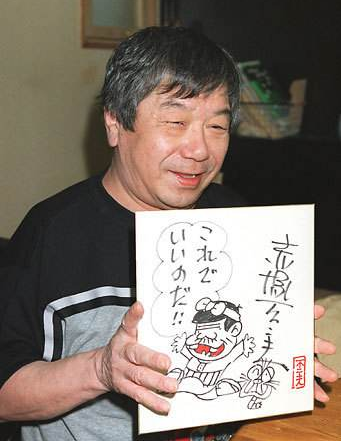 これで
いいのだ!!
赤塚不二夫
不二夫